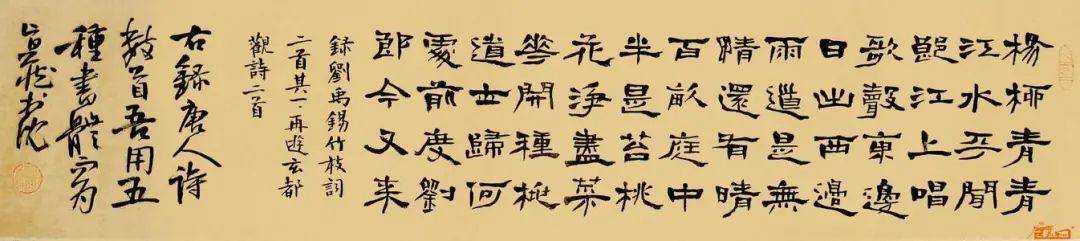 楊柳青青
江水平聞
郎江上唱
歌聲東邊
日出西邊
雨道是無
晴還有晴
百畝庭中
半是苔桃
花淨盡菜
花開種桃
道士歸何
處前度劉
郎今又來
録劉禹錫竹枝詞
二首其一再遊玄都
觀詩二首
右録唐人詩
數首吾用五
種書體寫